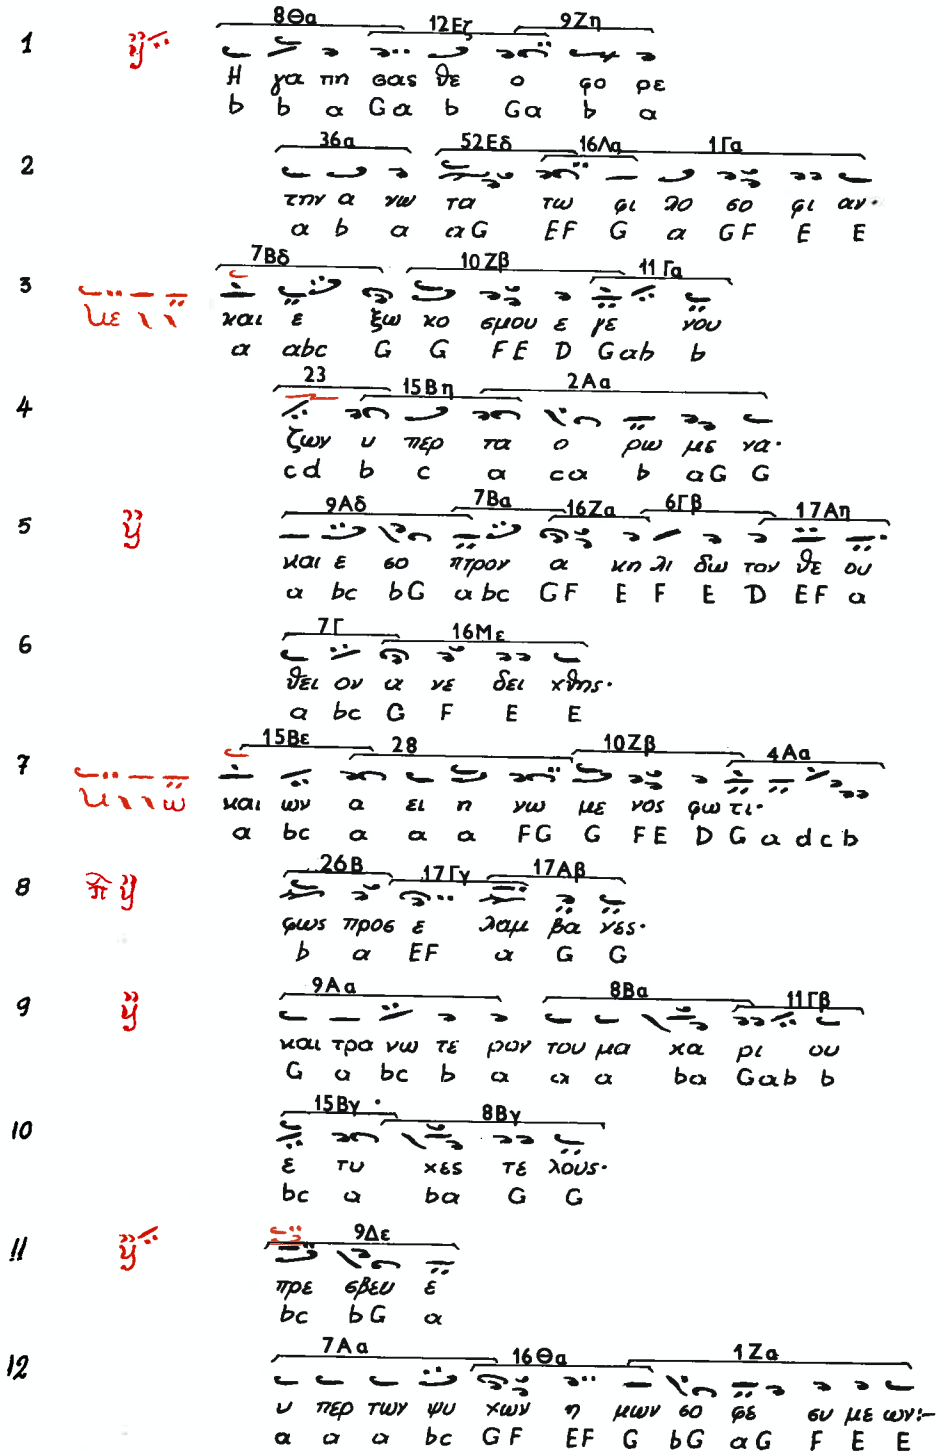 8Θα 12Εζ 9Ζη
1
Η γα πη σας θε ο φο ρε
b b a Ga b Ga b a
36α 52Εδ 16Λα 1Γα
2
την α νω τα τω φι λο σο φι αν·
a b a aG EF G a GF E E
7Βδ 10Ζβ 11Γα
3
και ε ξω κο σμου ε γε νου
a abc G G FE D Gab b
23 15Βη 2Αα
4
ζων υ περ τα ο ρω με να·
cd b c a ca b aG G
9Αδ 7Βα 16Ζα 6Γβ 17Αη
5
και ε σο πτρον α κη λι δω τον θε ου
a bc bG abc GF E F E D EF a
7Γ 16Με
6
θει ον α νε δει χθης·
a bc G F E E
15Βε 28 10Ζβ 4Αα
7
και ων α ει η νω με νος φω τι·
a bc a a a FG G FE D G a dcb
26Β 17Γγ 17Αβ
8
φως προς ε λαμ βα νες·
b a EF a G G
9Αα 8Βα 11Γβ
9
και τρα νω τε ρον του μα κα ρι ου
G a bc b a a a ba Gab b
15Βγ 8Βγ
10
ε τυ χες τε λους·
bc a ba G G
9Δε
11
πρε σβευ ε
bc bG a
7Αα 16Θα 1Ζα
12
υ περ των ψυ χων η μων σο φε συ με ων:–
a a a bc GF EF G bG aG F E E